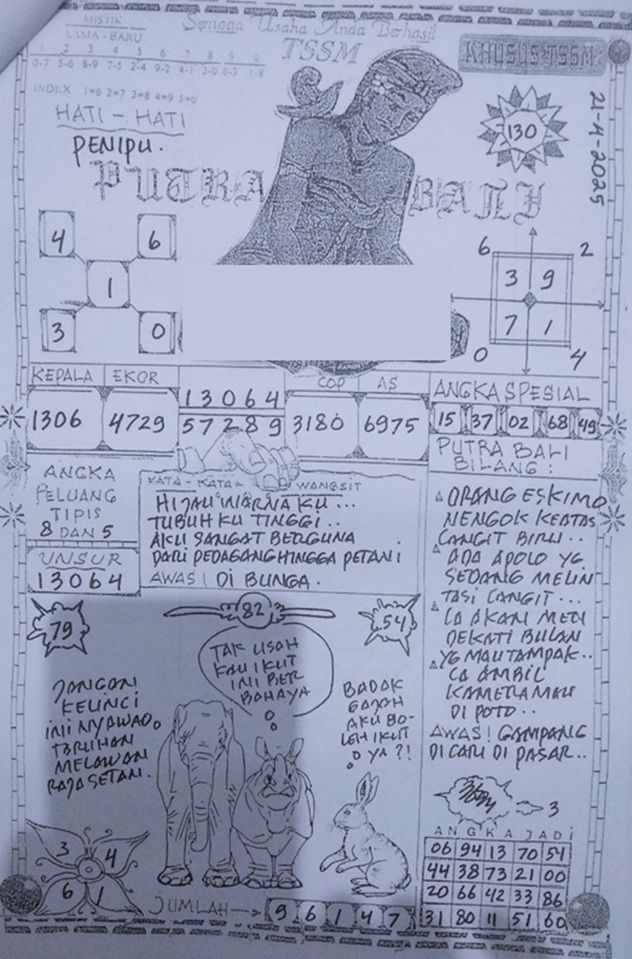 MISTIK
LAMA - BARU
1 2 3 4 5 6 7 8 9 0
0-7 5-6 8-9 7-5 2-4 9-2 4-1 3-0 6-3 1-8
INDEX 1=6 2=7 3=8 4=9 5=0
Semoga Usaha Anda Berhasil
TSSM
KHUSUS TSSM
HATI - HATI
PENIPU.
130
21-4-2025
PUTRA BALI
4 6
1
3 0
6 2
3 9
7 1
0 4
KEPALA EKOR
1306 4729
13064
57289
COP AS
3180 6975
ANGKA SPESIAL
15 37 02 68 49
ANGKA
PELUANG
TIPIS
8 DAN 5
UNSUR
13064
KATA - KATA - WANGSIT
HIJAU WARNA KU...
TUBUH KU TINGGI..
AKU SANGAT BERGUNA
DARI PEDAGANG HINGGA PETANI
AWAS! DI BUNGA.
PUTRA BALI
BILANG:
ORANG ESKIMO
NENGOK KEATAS
LANGIT BIRU..
ADA APOLO YG
SEDANG MELIN
TASI LANGIT...
IA AKAN MEN
DEKATI BULAN
YG MAU TAMPAK..
IA AMBIL
KAMERA MAU
DI POTO..
AWAS! GAMPANG
DI CARI DI PASAR..
79
82
54
JANGAN
KELINCI
INI NYAWA
TARUHAN
MELAWAN
RAJA SETAN.
TAK USAH
KAU IKUT
INI BER
BAHAYA
BADAK
GAJAH
AKU BO-
LEH IKUT
YA ?!
3 4
6 1
JUMLAH 9 6 1 4 7
3
ANGKA JADI
06 94 13 70 54
44 38 73 21 00
20 66 42 33 86
31 80 11 51 60